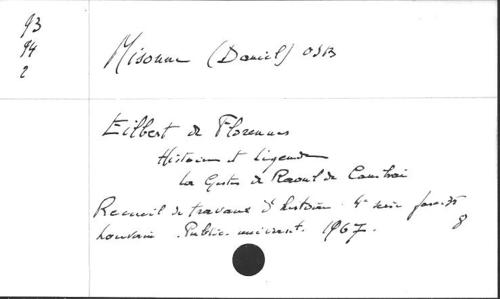 93
94
2
Misonne (Daniel) OSB
Eilbert de Florennes
Histoire et légende
La Geste de Raoul de Cambrai
Recueil de travaux d'histoire 4e série fasc. 35
Louvain. Public. universit. 1967.
8